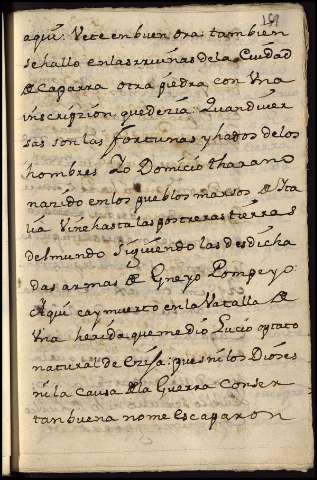 169
aqui: Vete en buen ora: tambien
se hallo en las rruinas de la Ciudad
de Caparra otra piedra con Vna
inscripzion que dezia: Quan diver
sas son las fortunas y hados de los
hombres Yo Domicio tharano
nazido en los pueblos marsos de Ita
lia Vine hasta las postreras tierras
del mundo siguiendo las desdicha
das armas de Gneyo Pompeyo:
Aqui cay muerto en la Vatalla de
Vna herida que me dio Lucio optato
natural de : que ni los Dioses
ni la causa de la Guerra con ser
tan buena no me escaparon